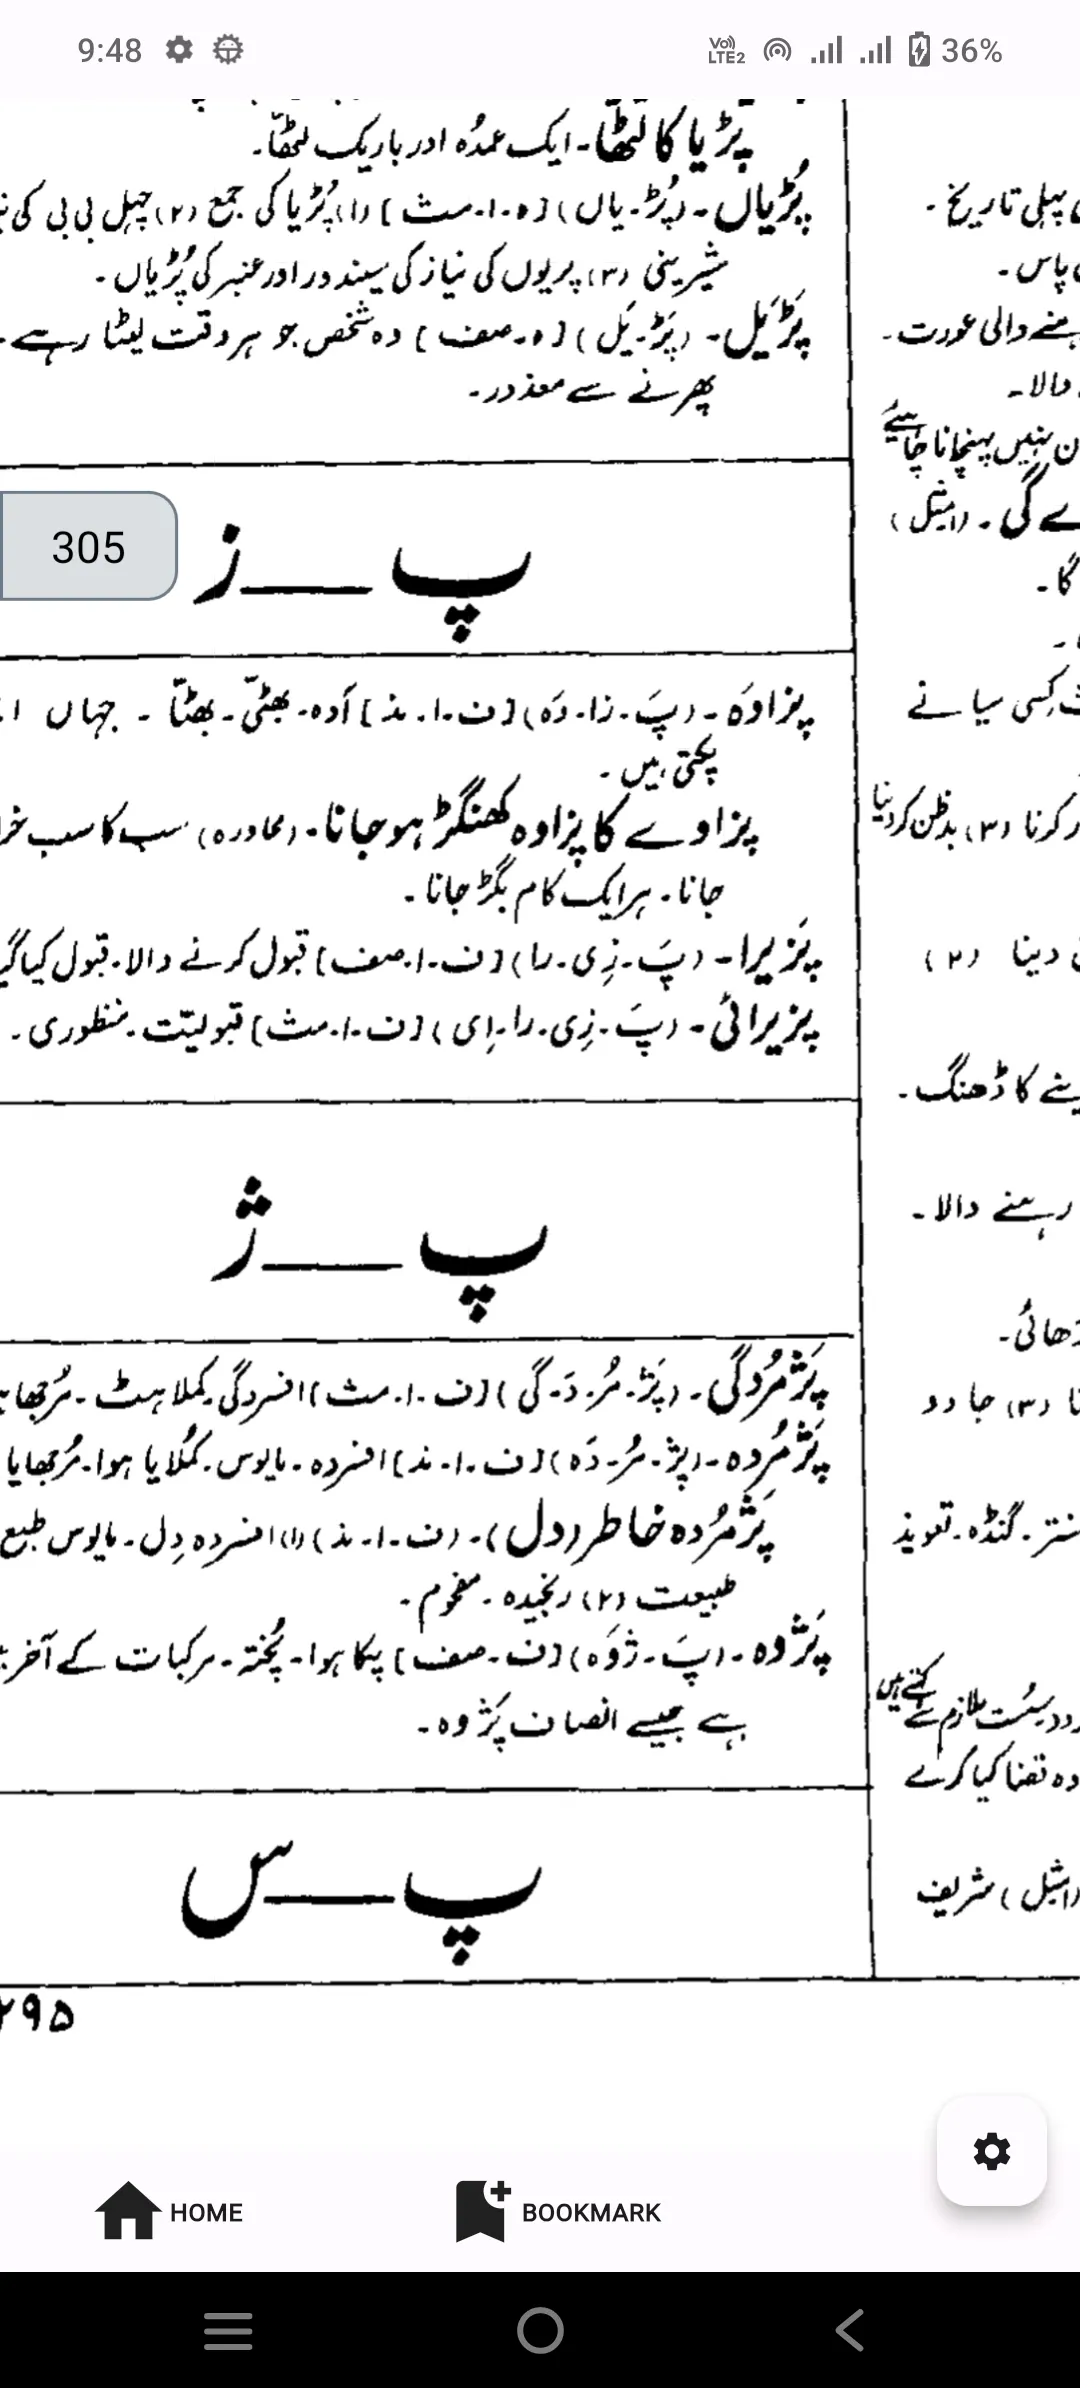 9:48
Vo) LTE2
36%
پڑیا کا لٹھا۔ ایک عمدہ اور باریک لٹھا۔
پُڑیاں۔ (پُڑ۔یاں) [ہ۔ا۔مث] (۱) پُڑیا کی جمع (۲) چہل بی بی کی
شیرینی (۳) پریوں کی نیاز کی سیندور اور عنبر کی پُڑیاں۔
پَڑیَل۔ (پَڑ۔یَل) [ہ۔صف] وہ شخص جو ہر وقت لیٹا رہے۔
پھرنے سے معذور۔
305
پ ــــ ز
پزاوَہ۔ (پَ۔زا۔وَہ) [ف۔ا۔مذ] آوہ۔ بھٹی۔ بھٹا ۔ جہاں
پکتی ہیں۔
پزاوے کا پزاوہ کھنگڑ ہو جانا۔ (محاورہ) سب کا سب
جانا۔ ہر ایک کام بگڑ جانا۔
پَزیرا۔ (پَ۔زِی۔را) [ف۔ا۔صف] قبول کرنے والا۔ قبول کیا
پزیرائی۔ (پَ۔زِی۔را۔اِی) [ف۔ا۔مث] قبولیّت۔ منظوری۔
پ ــــ ژ
پَژمُردگی۔ (پَژ۔مُر۔دَ۔گی) [ف۔ا۔مث] افسردگی۔ کملاہٹ۔
پَژمُردہ۔ (پژ۔مُر۔دَہ) [ف۔ا۔مذ] افسردہ۔ مایوس۔ کُملایا ہوا۔ مُرجھایا
پَژمُردہ خاطر (دل)۔ (ف۔ا۔مذ) (۱) افسردہ دِل۔ مایوس
طبیعت (۲) رنجیدہ۔ مغموم۔
پَژوہ۔ (پَ۔ژوَہ) [ف۔صف] پکا ہوا۔ پُختہ۔ مرکبات کے آخر
ہے جیسے انصاف پَژوہ۔
پ ــــ س
۲۹۵
پہلی تاریخ۔
پاس۔
والی عورت۔
والا۔
نہیں پہنچانا چاہئیے
گی۔ (مثل)
گا۔
کسی سیانے
کرنا (۳) بدظن کر دینا
دینا (۲)
کا ڈھنگ۔
رہنے والا۔
(۳) جادو
گنڈہ۔ تعویذ
سُست ملازم کے کہتے ہیں
وہ تقضا کیا کرے
(مثل) شریف
HOME
BOOKMARK